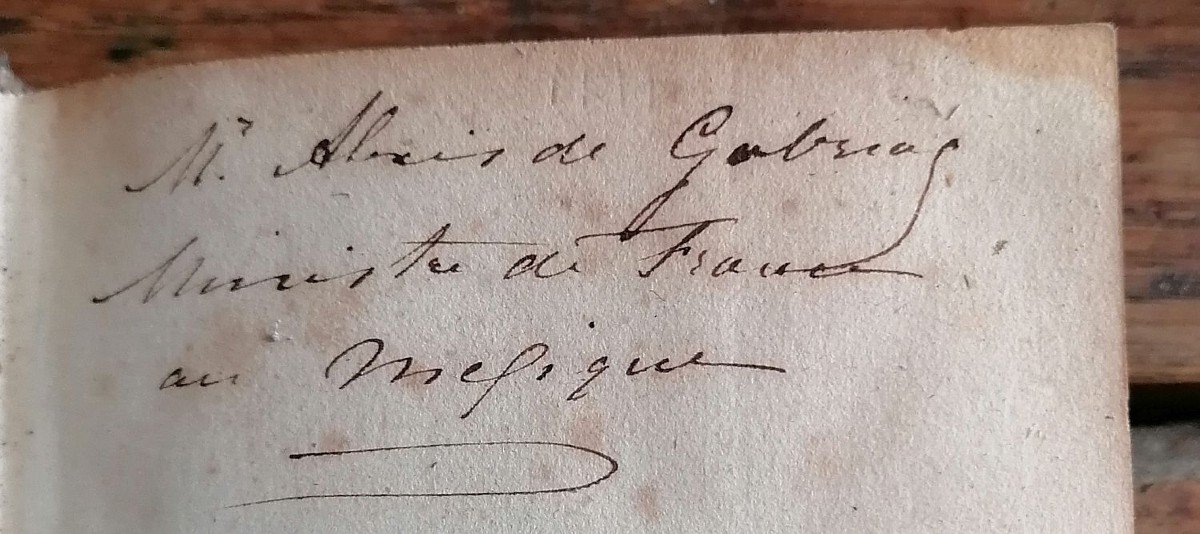 Mr. Alexis de Gabriac
Ministre de France
au Mexique